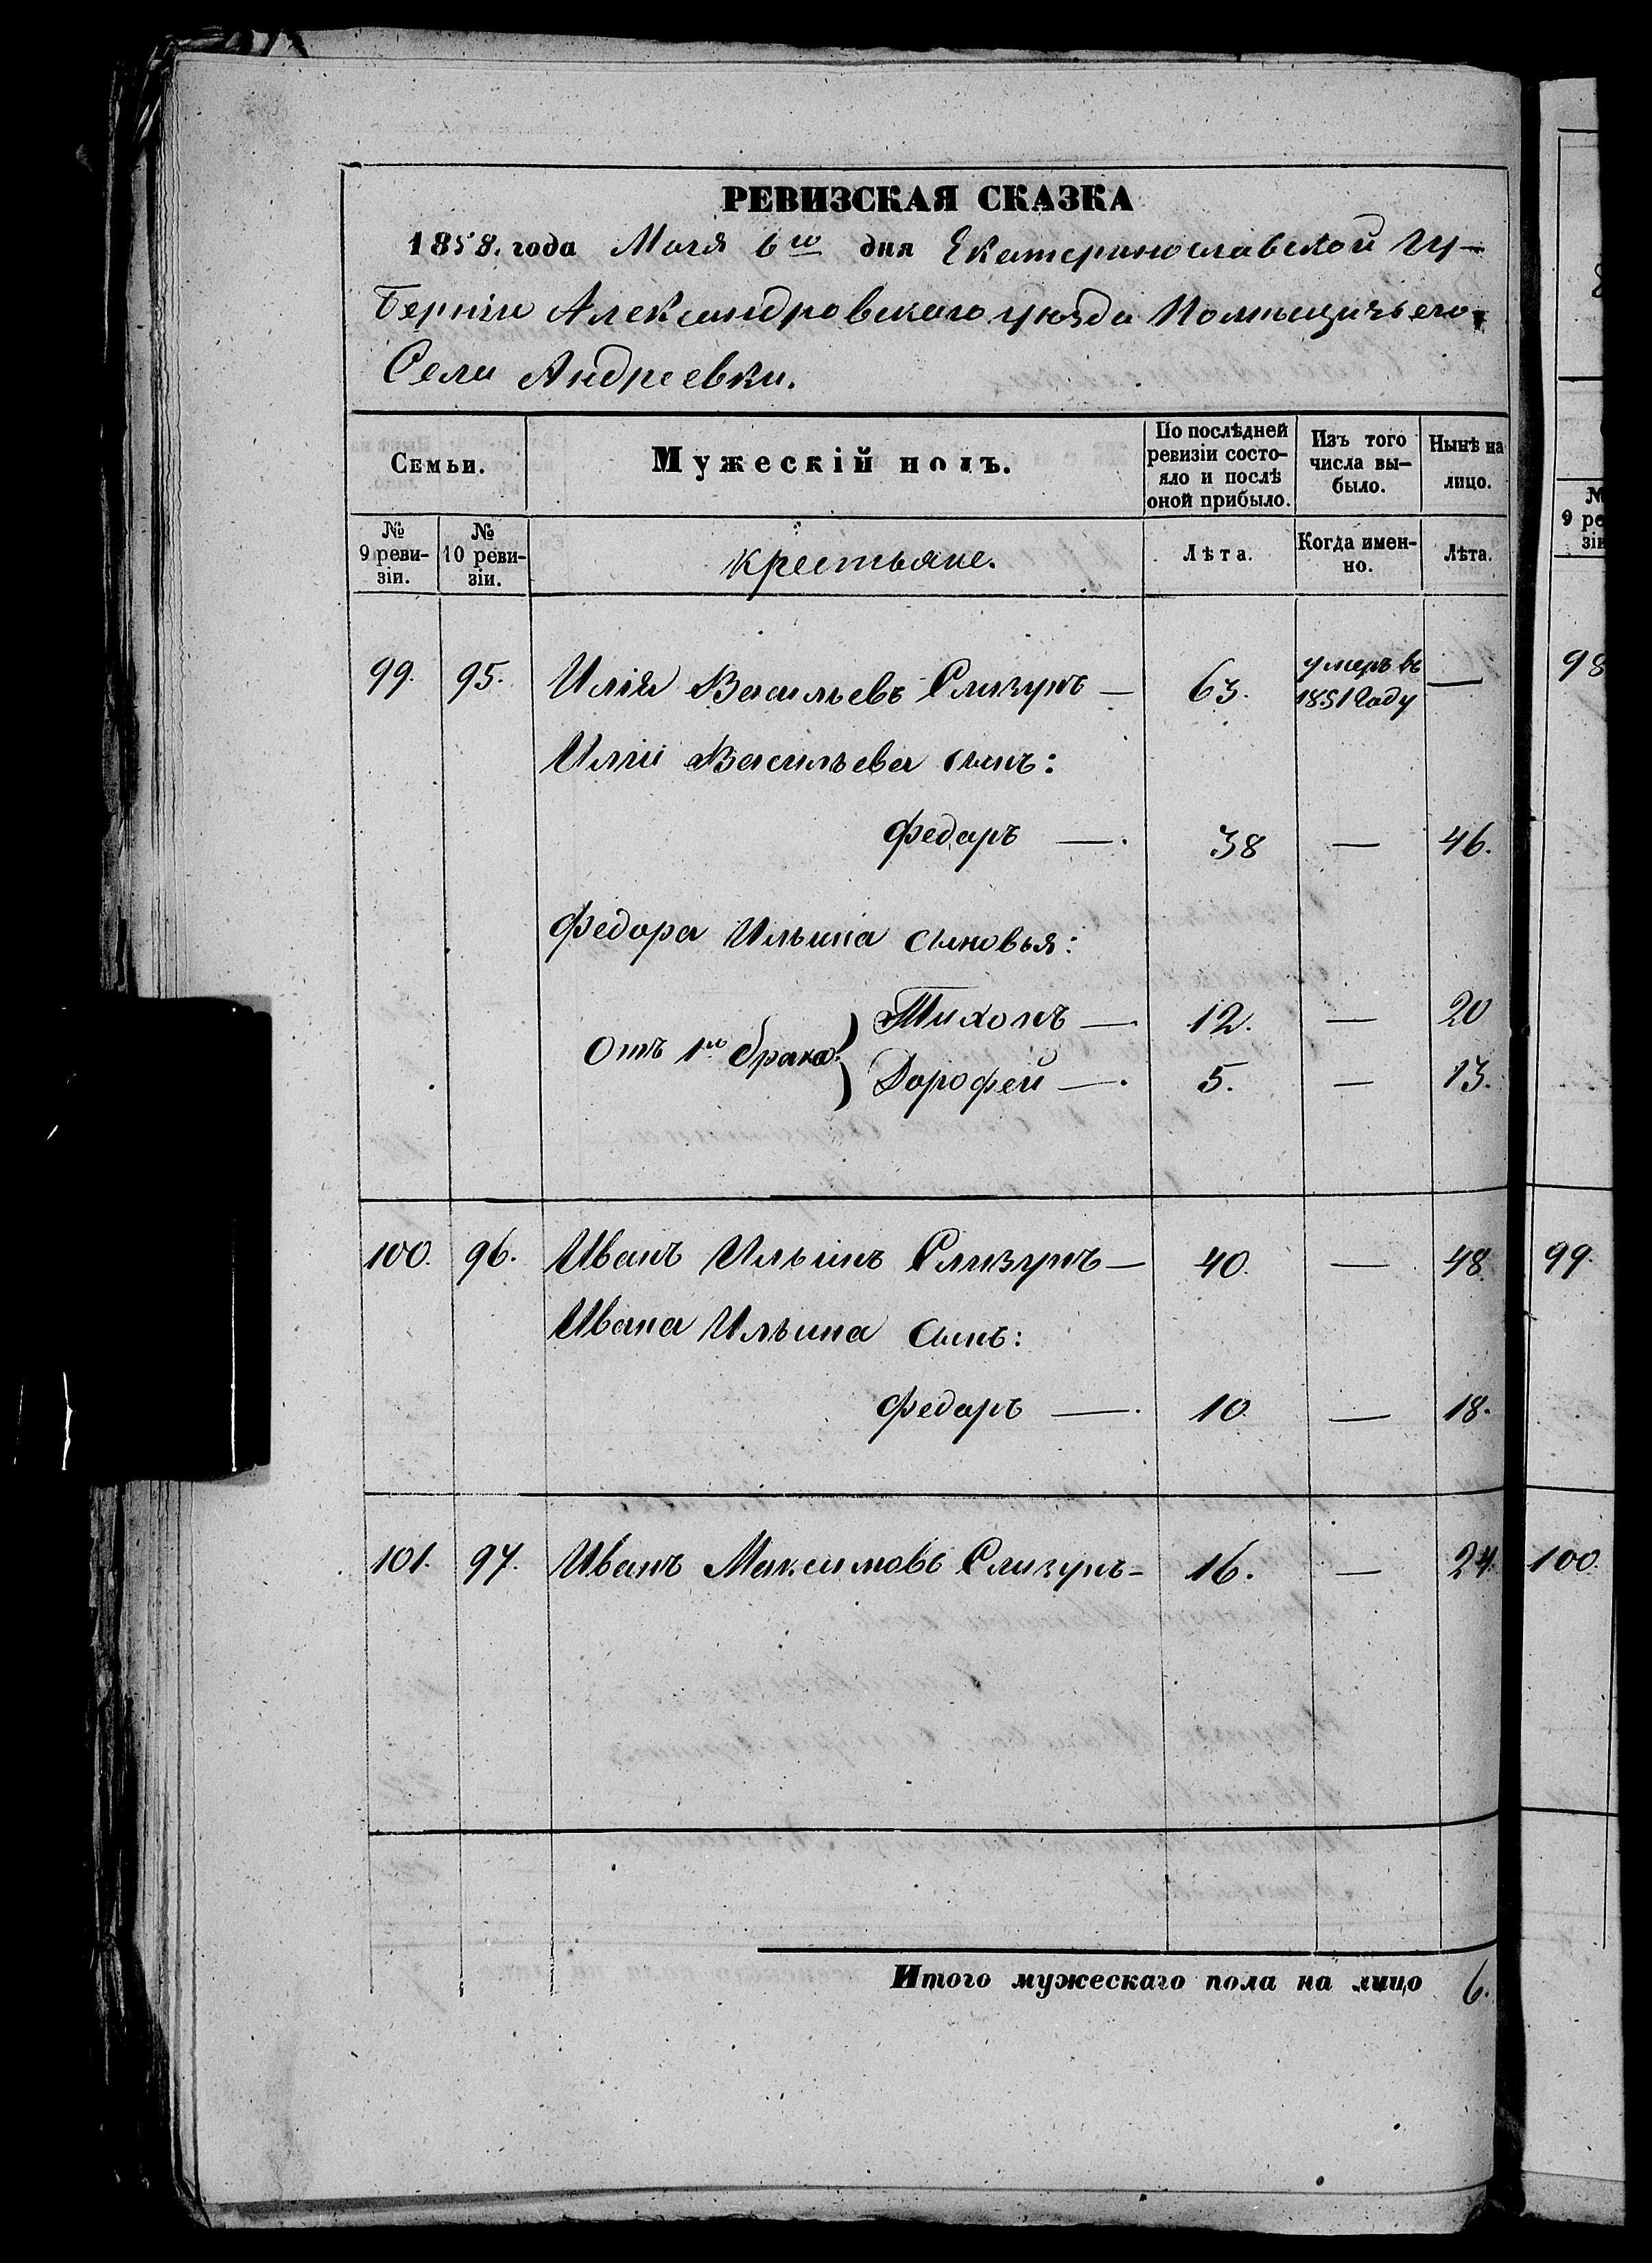 РЕВИЗСКАЯ СКАЗКА
1858. года Маія 6го дня Екатеринославской Гу-
берніи Александровскаго уѣзда Помѣщичьего
Села Андреевки.
Семьи.
Мужескій полъ.
По послѣдней ревизіи состо-яло и послѣ оной прибыло.
Изъ того числа вы-было.
Нынѣ на лицо.
№ 9 реви-зіи.
№ 10 реви-зіи.
крестьяне.
Лѣта.
Когда имен-но.
Лѣта.
99. 95. Илія Васильевъ Слизунъ — 63. умеръ въ 1851 Году —
Иліи Васильева сынъ:
Федоръ —. 38 — 46.
Федора Ильина сыновья:
Отъ 1го брака: Тихонъ —. 12. — 20
Дорофей —. 5. — 13.
100. 96. Иванъ Ильинъ Слизунъ — 40. — 48.
Ивана Ильина сынъ:
Федоръ —. 10. — 18.
101. 97. Иванъ Максимовъ Слизунъ — 16. — 24.
Итого мужескаго пола на лицо 6.
№
9 ре
зіи
98
99.
100.